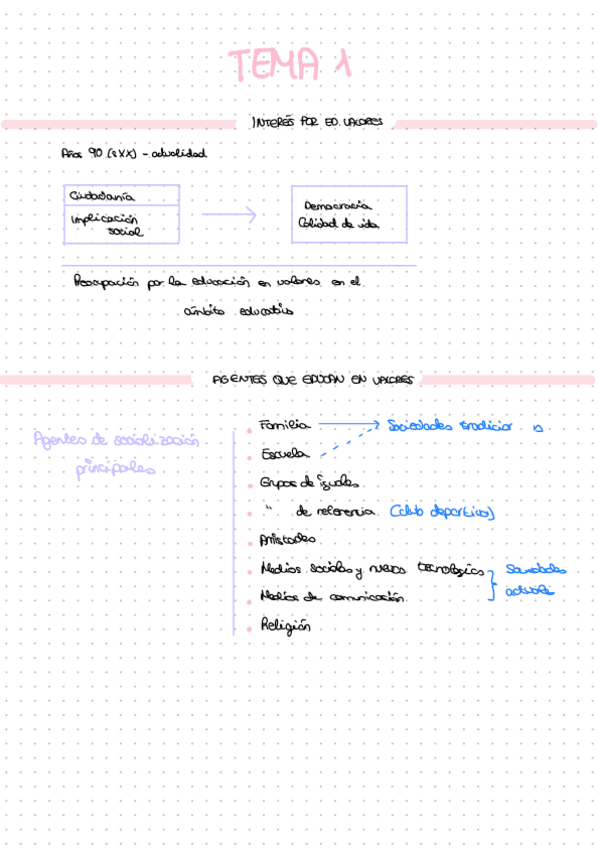 TEMA 1
INTERÉS POR ED. VALORES
Años 90 (s XX) - actualidad
Ciudadanía
Implicación
social
Democracia
Calidad de vida
Preocupación por la educación en valores en el
ámbito educativo
AGENTES QUE EDUCAN EN VALORES
Agentes de socialización
principales
Familia
Sociedades
Escuela
Grupos de iguales
" de referencia (club deportivo)
Amistades
Medios sociales y nuevas tecnologías
Medios de comunicación
Sociedades
actuales
Religión